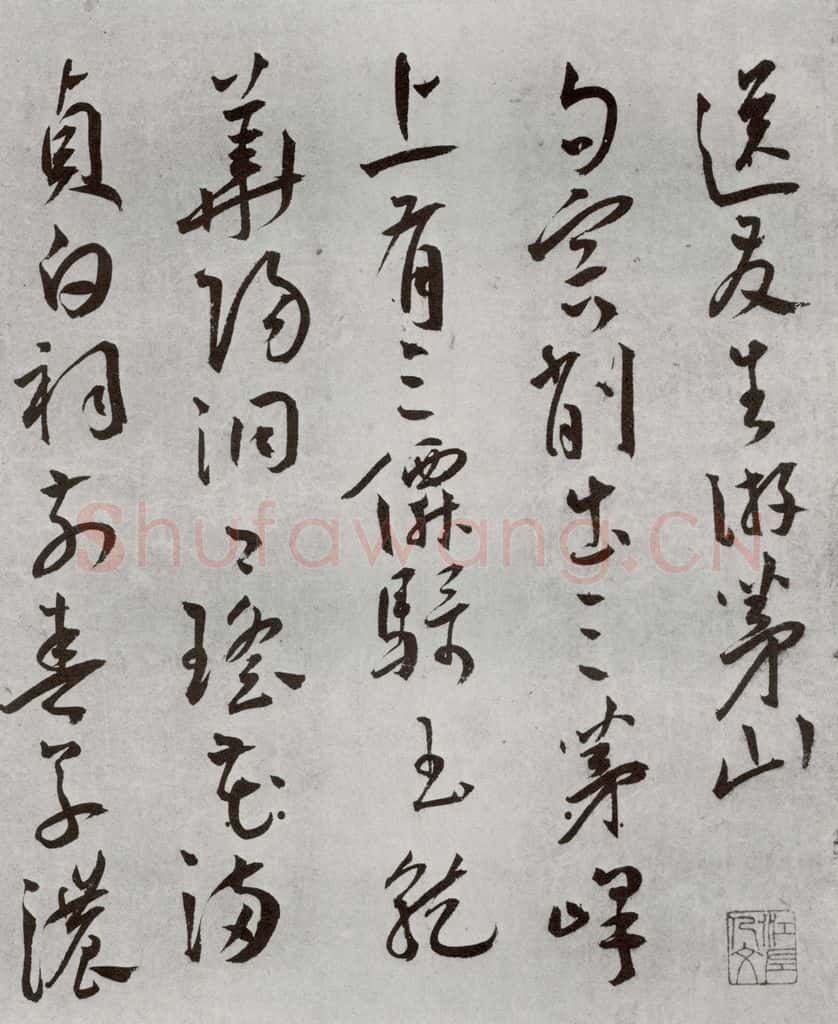 送友生游茅山
句容削出三茅峰
上有三僊騎玉龍
華陽洞〻瑤花滿
貞白祠前春草濃
Shufawang.CN